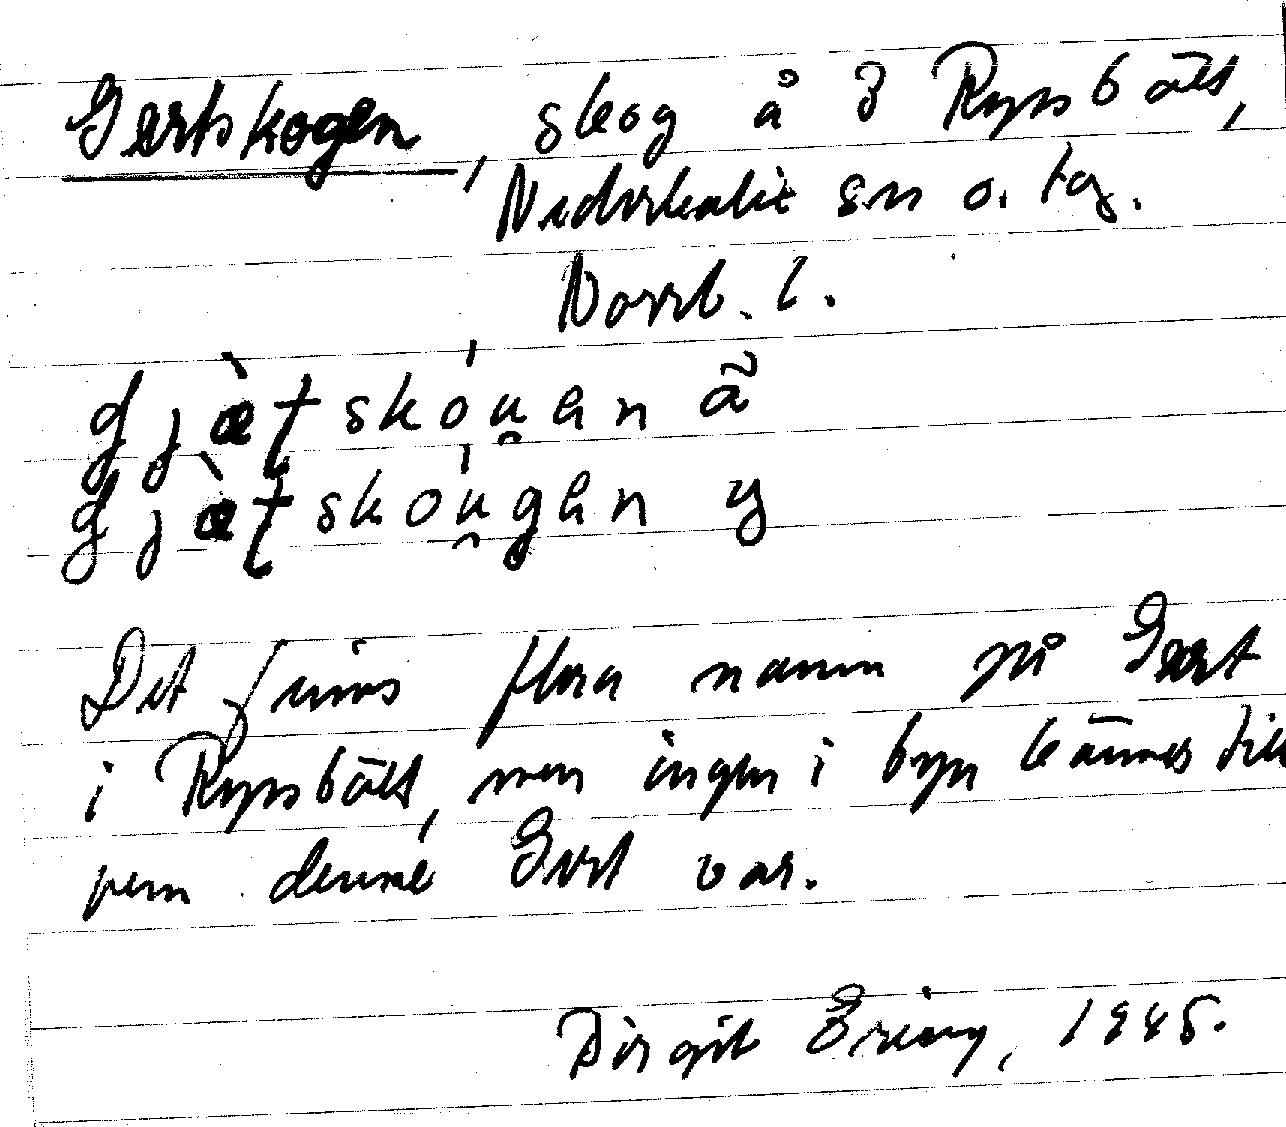 Gertskogen, skog å 3 Rynsbält,
Nederkalix sn o. tg.
Norrb. l.
gjæ̀ƫskóu̯an ã
gjæ̀ƫskóu̯gan y
Det finns flera namn på Gert
i Rynsbält, men ingen i byn kännes till
vem denne Gert var.
Birgit Ering, 1945.